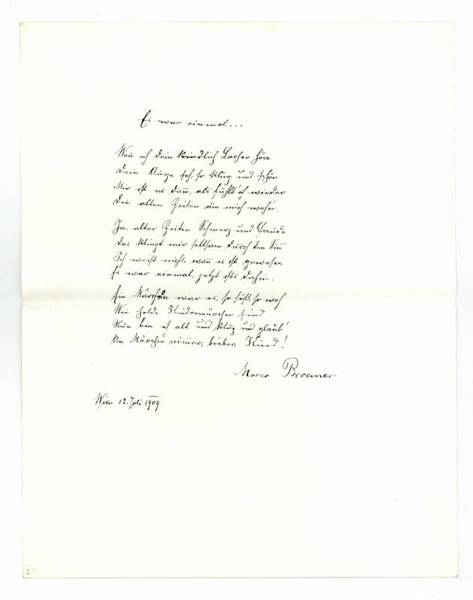 Es war einmal...
Wenn ich Dein kindlich Lachen höre
Dein Auge seh, so klug und schön
Mir ist es dann, als fühlt' ich wieder
Die alten Zeiten um mich wehn.
Ja, alter Zeiten Schmerz und Freude
Das klingt mir seltsam durch den Sinn
Ich weiß nicht, wann es ist gewesen
Es war einmal, jetzt ists dahin.
Ein Märchen war es, so süß, so
Wie holde Kindermärchen sind
Nun bin ich alt und klug und glaub'
An Märchen nimmer, liebes Kind!
Marco Brociner
Wien 12. Juli 1909